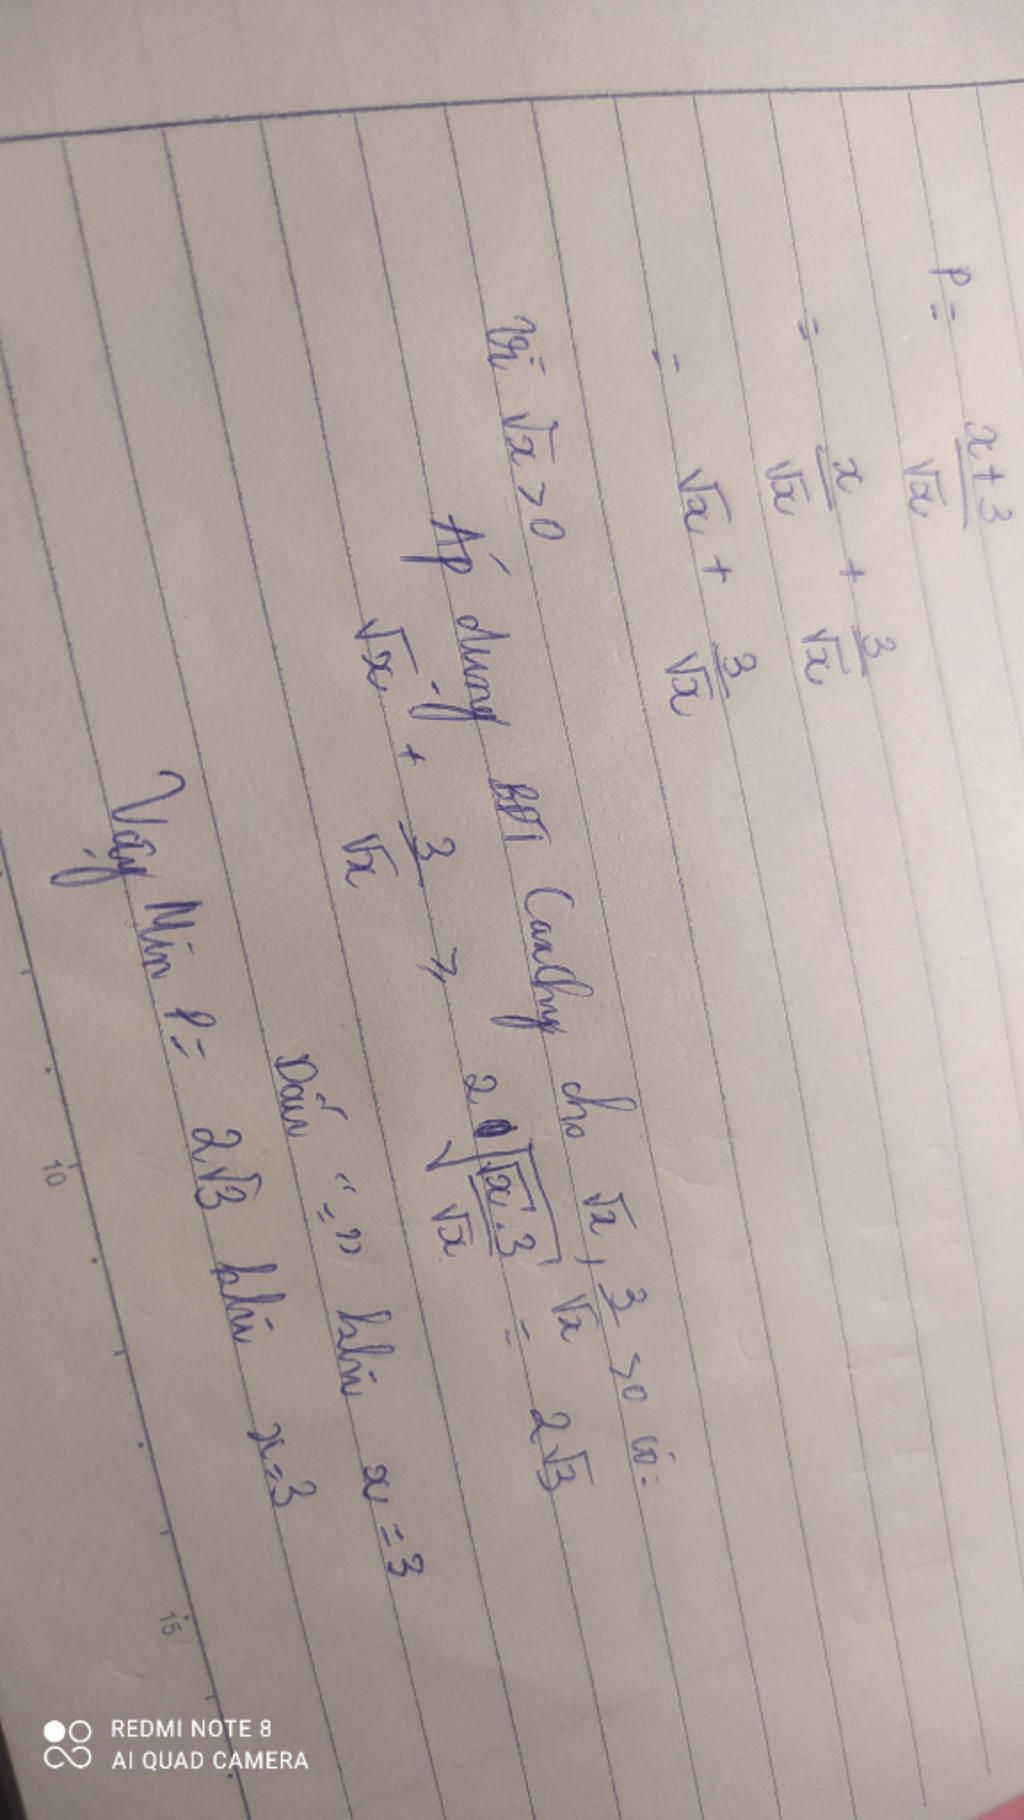 P = x+3/√x
= x/√x + 3/√x
= √x + 3/√x
Vì √x > 0
Áp dụng BĐT Cauchy cho √x, 3/√x > 0 có:
√x + 3/√x ≥ 2√(√x.3/√x) = 2√3
Dấu "=" khi x = 3
Vậy Min P = 2√3 khi x = 3
10
15
REDMI NOTE 8
AI QUAD CAMERA